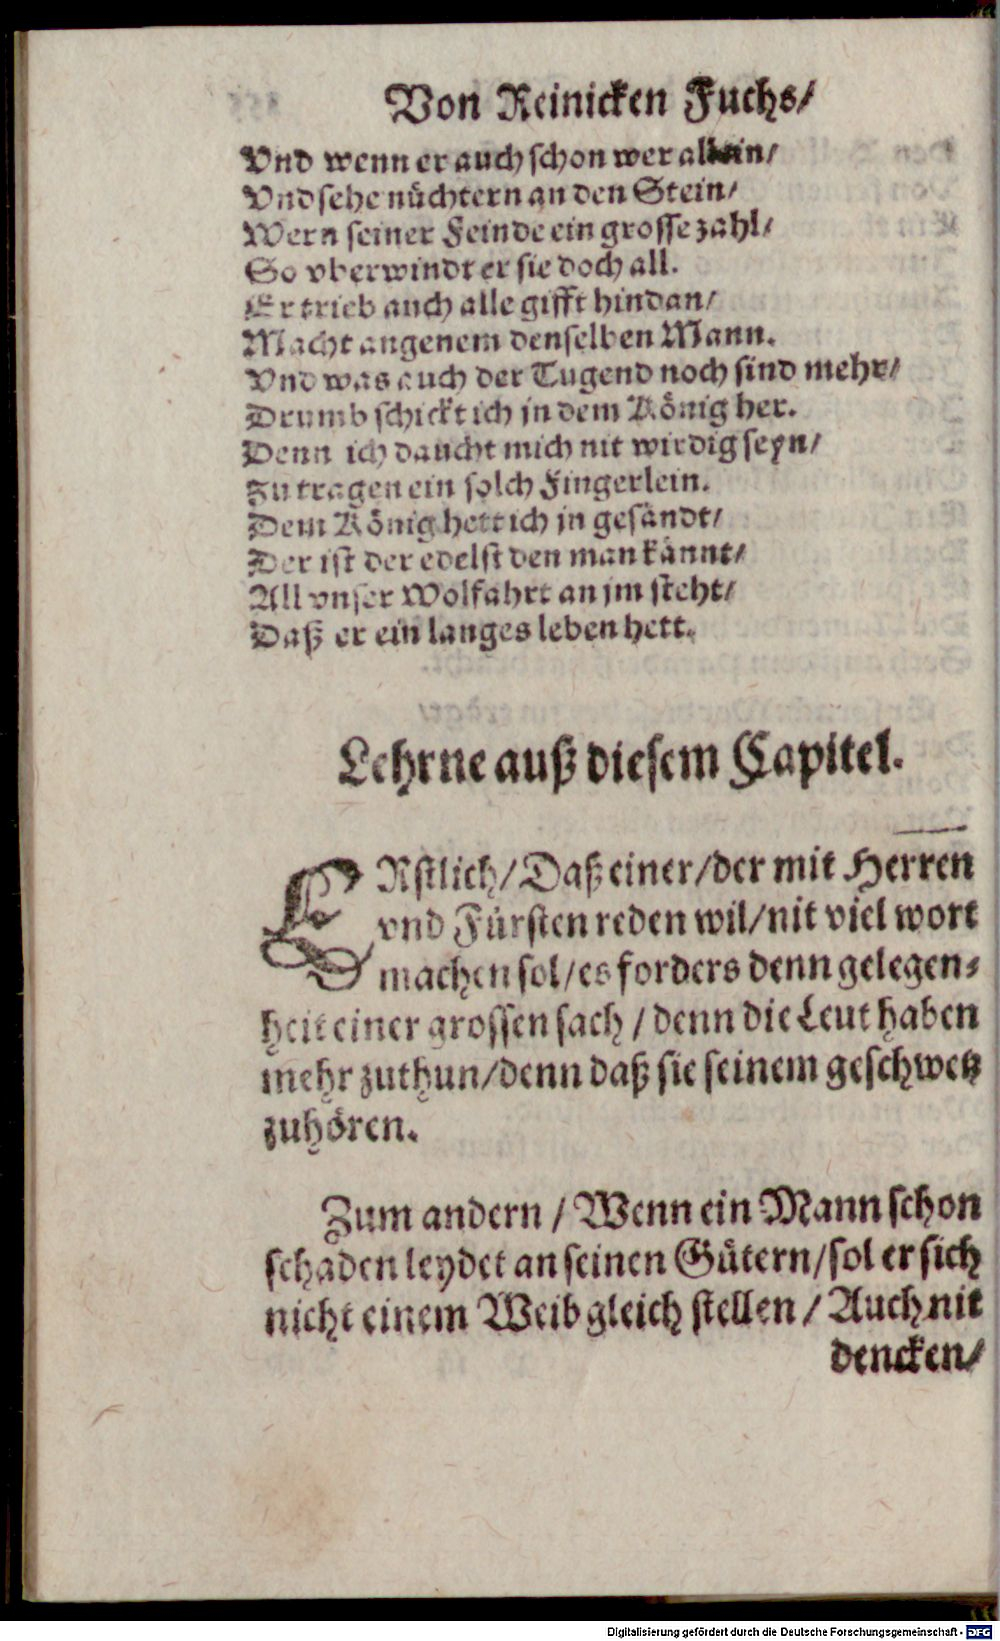 Von Reinicken Fuchs/
Vnd wenn er auch schon wer allein/
Vnd sehe nüchtern an den Stein/
Wern seiner Feinde ein grosse zahl/
So vberwindt er sie doch all.
Er trieb auch alle gifft hindan/
Macht angenem denselben Mann.
Vnd was auch der Tugend noch sind mehr/
Drumb schickt ich jn dem König her.
Denn ich daucht mich nit wirdig seyn/
Zu tragen ein solch Fingerlein.
Dem König hett ich jn gesandt/
Der ist der edelst den man kännt/
All vnser Wolfahrt an jm steht/
Daß er ein langes leben hett.
Lehrne auß diesem Capitel.
ERstlich/ Daß einer/ der mit Herren
vnd Fürsten reden wil/ nit viel wort
machen sol/ es forders denn gelegen-
heit einer grossen sach/ denn die Leut haben
mehr zuthun/ denn daß sie seinem geschwetz
zuhören.
Zum andern/ Wenn ein Mann schon
schaden leydet an seinen Gütern/ sol er sich
nicht einem Weib gleich stellen/ Auch nit
dencken/
Digitalisierung gefördert durch die Deutsche Forschungsgemeinschaft - DFG